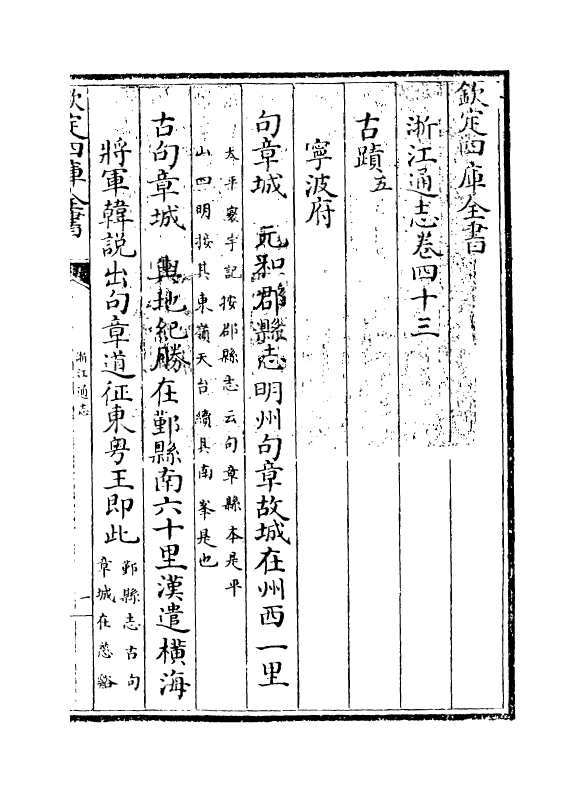 欽定四庫全書
浙江通志卷四十三
古蹟五
寧波府
句章城 元和郡縣志明州句章故城在州西一里
太平寰宇記按郡縣志云句章縣本是平
山四明按其東嶺天台續其南峯是也
古句章城 輿地紀勝在鄞縣南六十里漢遣横海
將軍韓説出句章道征東粤王即此
鄞縣志古句
章城在慈谿
欽定四庫全書
浙江通志
一